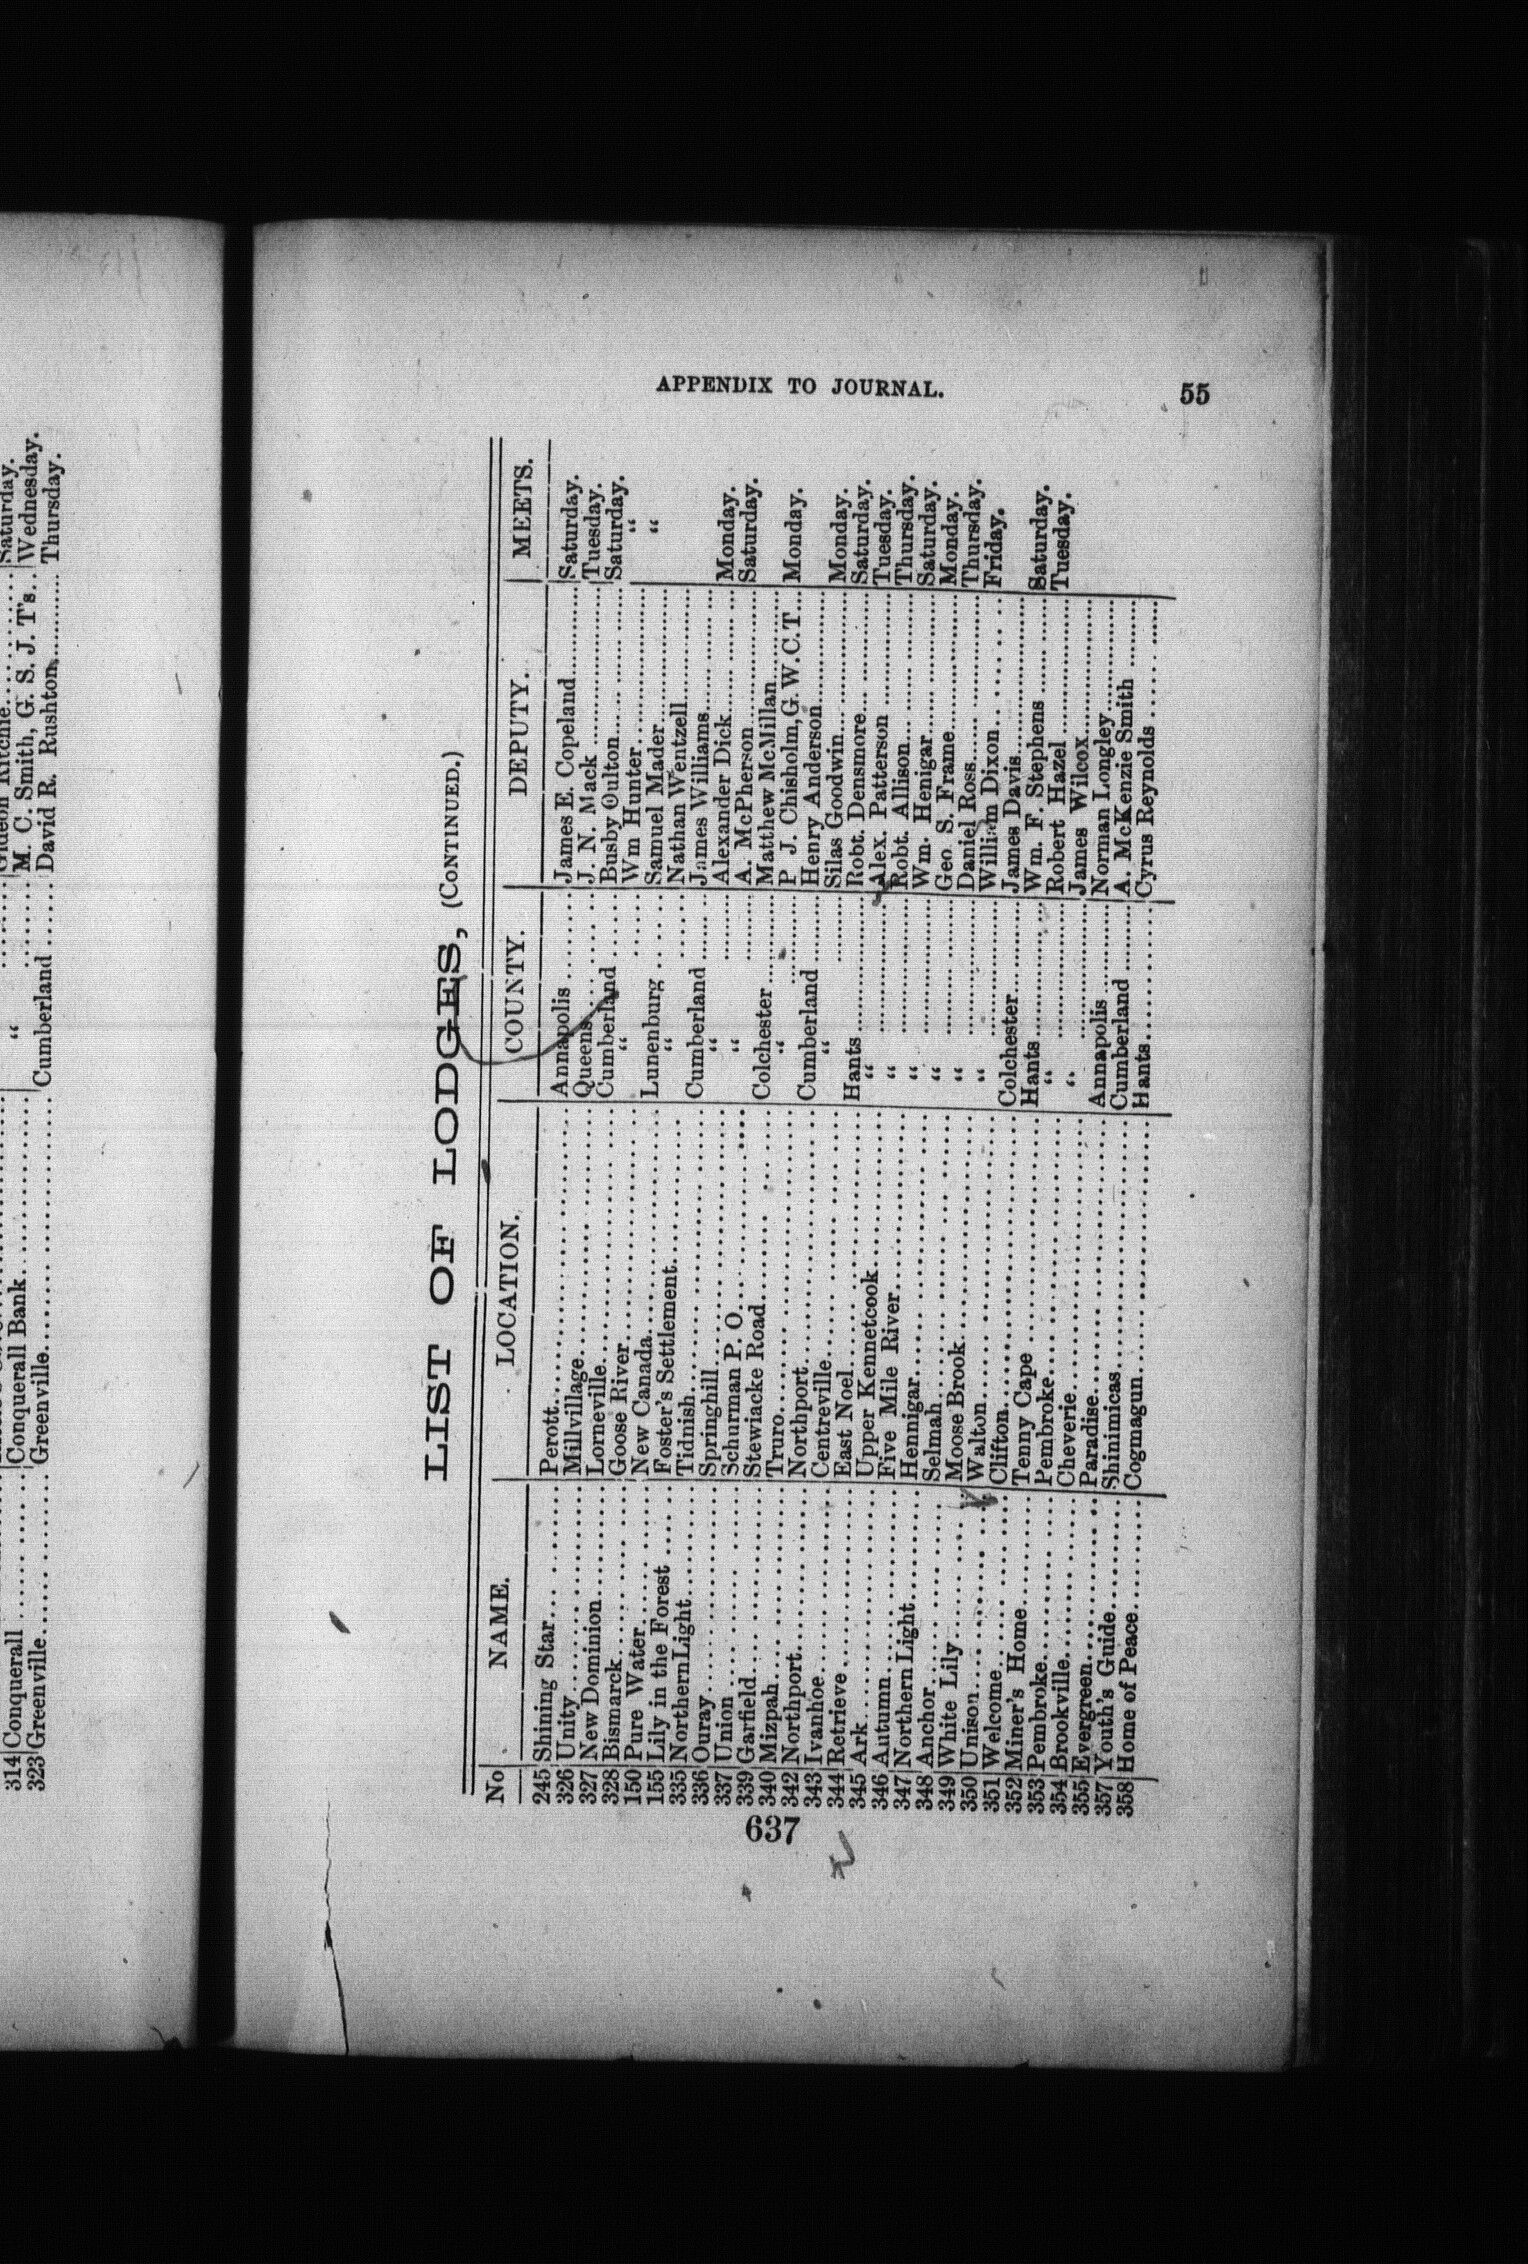 Saturday.
314 Conquerall Conquerall Bank “ M. C. Smith, G. S. J. T's. Wednesday.
323 Greenville Greenville Cumberland David R. Rushton Thursday.
APPENDIX TO JOURNAL. 55
LIST OF LODGES, (CONTINUED.)
No NAME. LOCATION. COUNTY. DEPUTY. MEETS.
245 Shining Star Perott Annapolis James E. Copeland Saturday.
326 Unity Millvillage Queens J. N. Mack Tuesday.
327 New Dominion Lorneville Cumberland Busby Oulton Saturday.
328 Bismarck Goose River “ Wm Hunter “
150 Pure Water New Canada Lunenburg Samuel Mader “
155 Lily in the Forest Foster's Settlement “ Nathan Wentzell
335 Northern Light Tidnish Cumberland James Williams
336 Ouray Springhill “ Alexander Dick Monday.
337 Union Schurman P. O. “ A. McPherson Saturday.
339 Garfield Stewiacke Road Colchester Matthew McMillan
340 Mizpah Truro “ P J. Chisholm, G. W. C. T. Monday.
342 Northport Northport Cumberland Henry Anderson
343 Ivanhoe Centreville “ Silas Goodwin Monday.
344 Retrieve East Noel Hants Robt. Densmore Saturday.
345 Ark Upper Kennetcook “ Alex. Patterson Tuesday.
346 Autumn Five Mile River “ Robt. Allison Thursday.
347 Northern Light Hennigar “ Wm. Henigar Saturday.
348 Anchor Selmah “ Geo. S. Frame Monday.
349 White Lily Moose Brook “ Daniel Ross Thursday.
350 Unison Walton “ William Dixon Friday.
351 Welcome Clifton Colchester James Davis
352 Miner's Home Tenny Cape Hants Wm. F. Stephens Saturday.
353 Pembroke Pembroke “ Robert Hazel Tuesday.
354 Brookville Cheverie “ James Wilcox
355 Evergreen Paradise Annapolis Norman Longley
357 Youth's Guide Shinimicas Cumberland A. McKenzie Smith
358 Home of Peace Cogmagun Hants Cyrus Reynolds
637